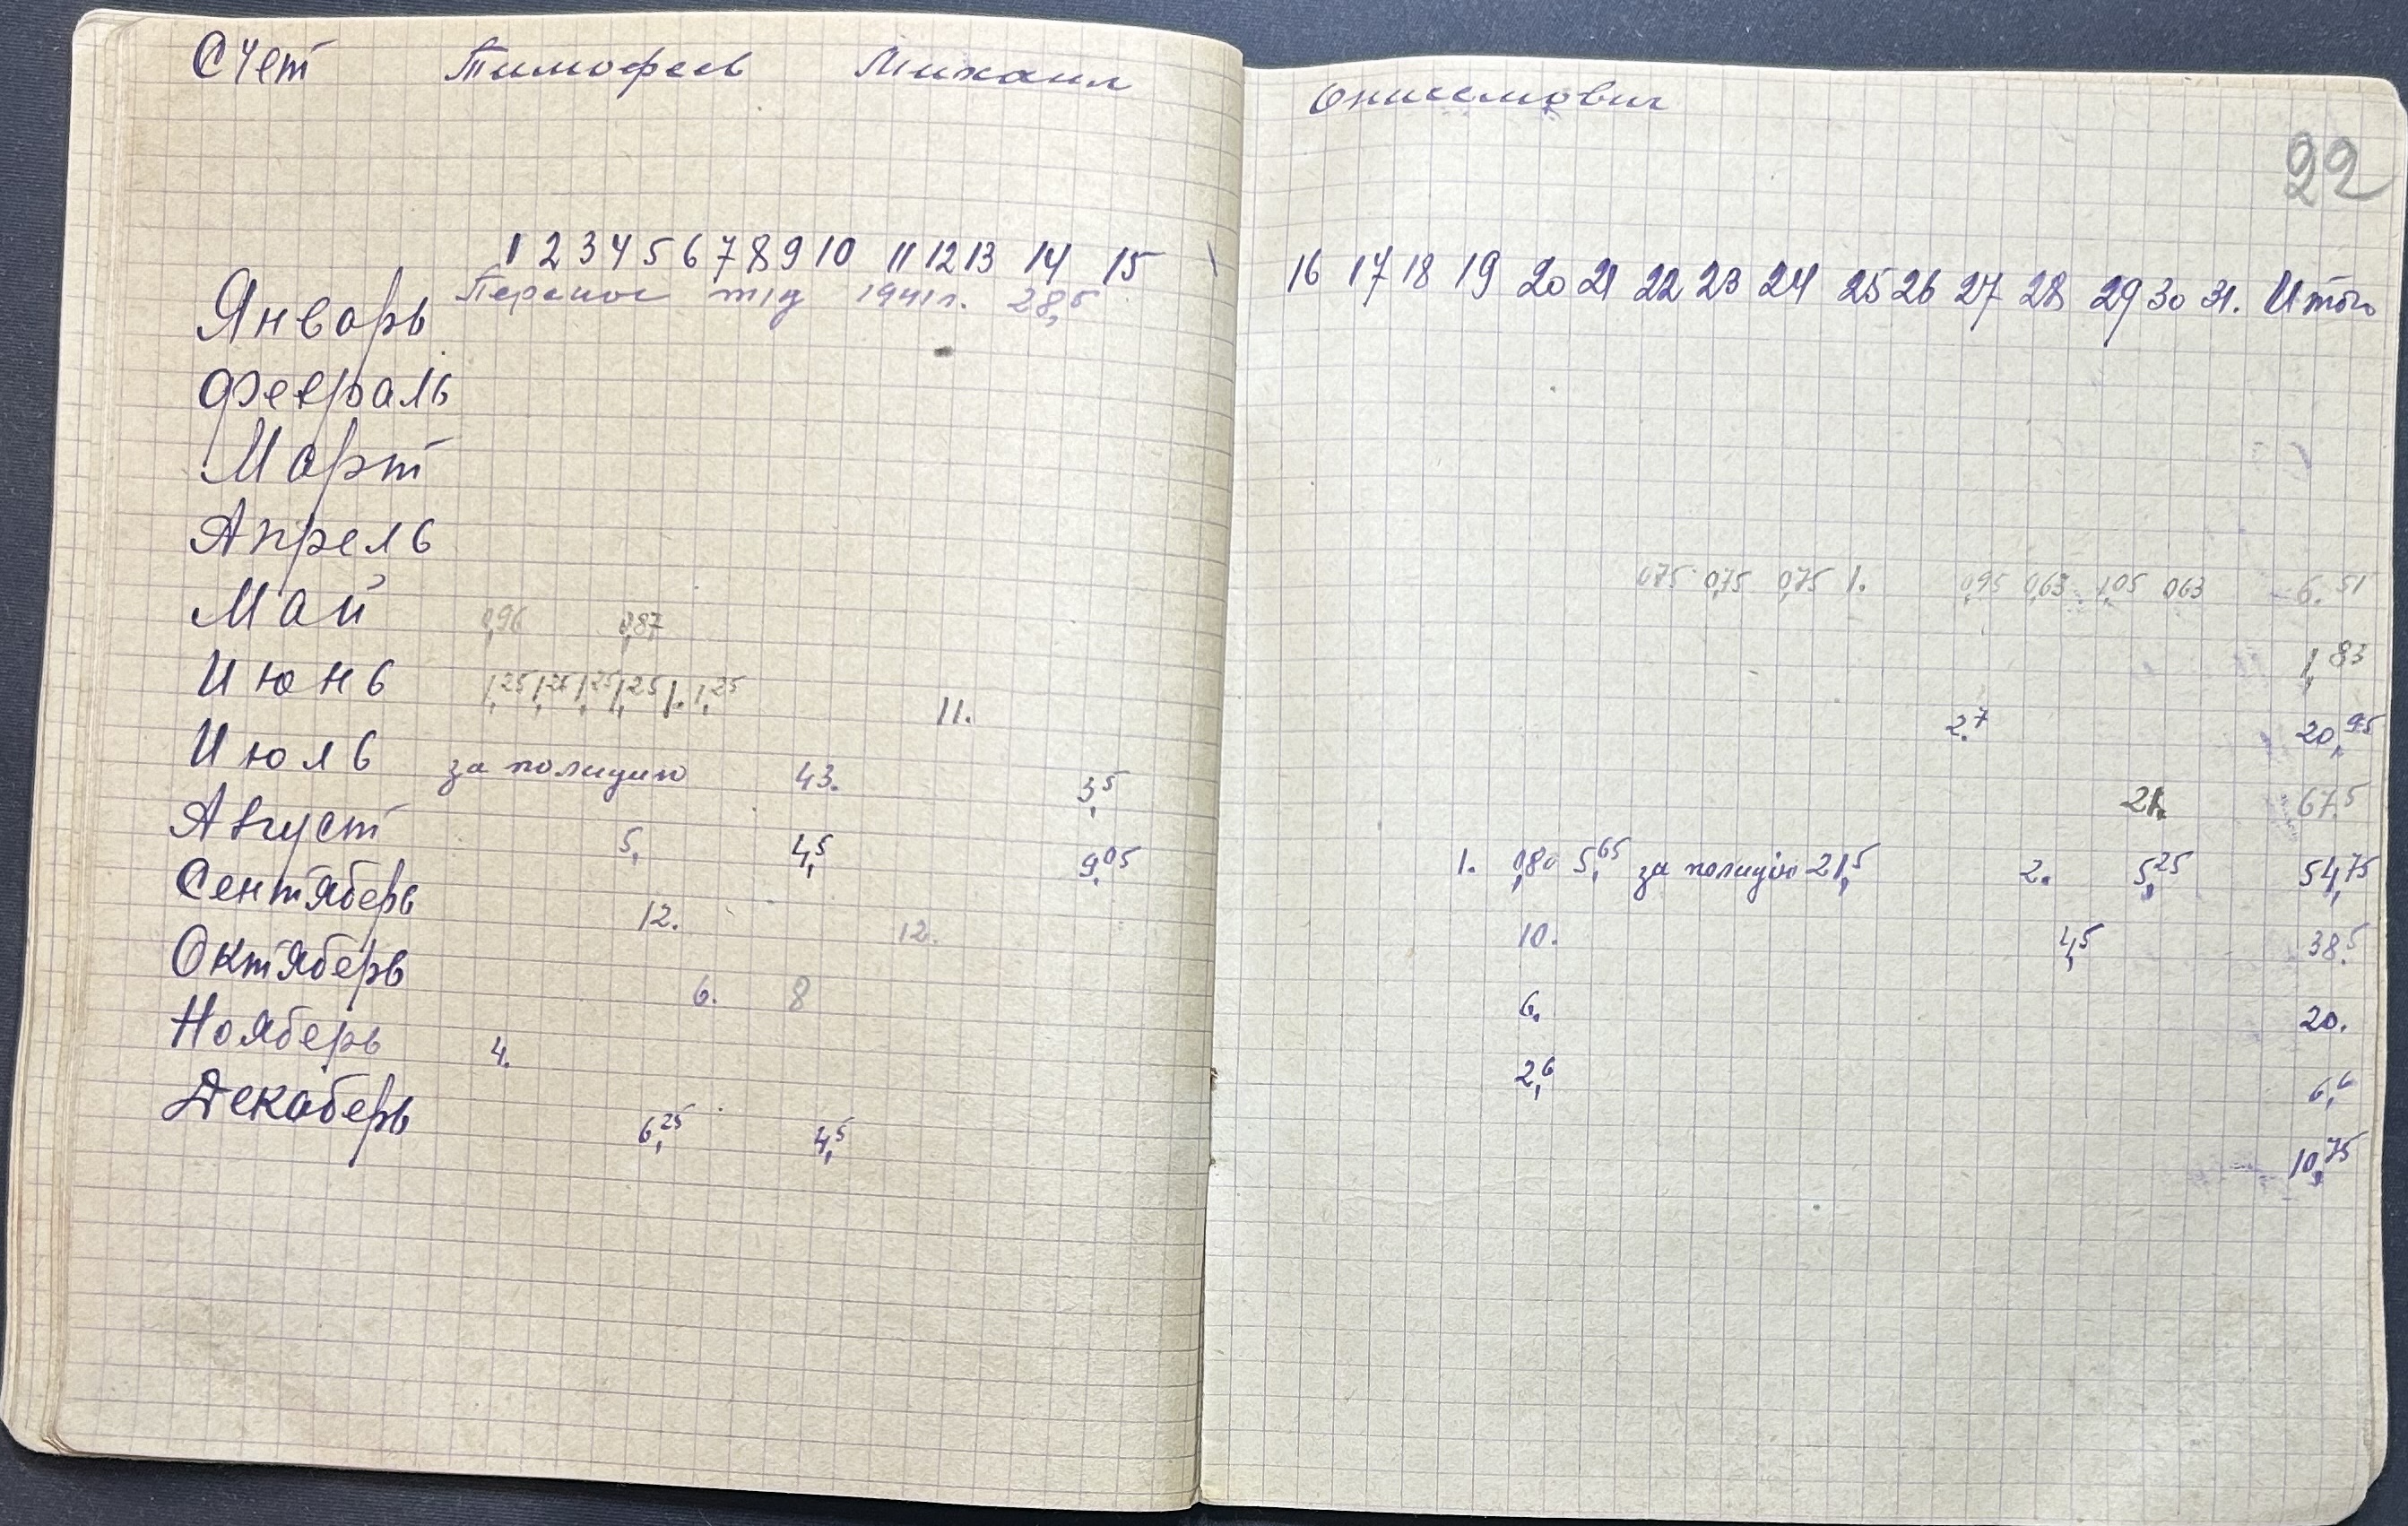 Счет Тимофеев Михаил Онисемович
22
1 2 3 4 5 6 7 8 9 10 11 12 13 14 15 16 17 18 19 20 21 22 23 24 25 26 27 28 29 30 31. Итого
Январь Перенос т/д 1941 г. 28,5
Февраль
Март
Апрель 0,75 0,75 0,75 1. 0,95 0,63 1,05 0,63 6.51
Май 0,96 0,87 1,83
Июнь 1,25 1,25 1,25 1,25 1. 1,25 11. 2.7 20,95
Июль за полицию 43. 3,5 21. 67.5
Август 5, 4,5 9,05 1. 0,80 5,65 за полицию 21,5 2. 5,25 54,75
Сентяберь 12. 12. 10. 4,5 38.5
Октяберь 6. 8 6. 20.
Нояберь 4. 2,6 6,6
Декаберь 6,25 4,5 10,75